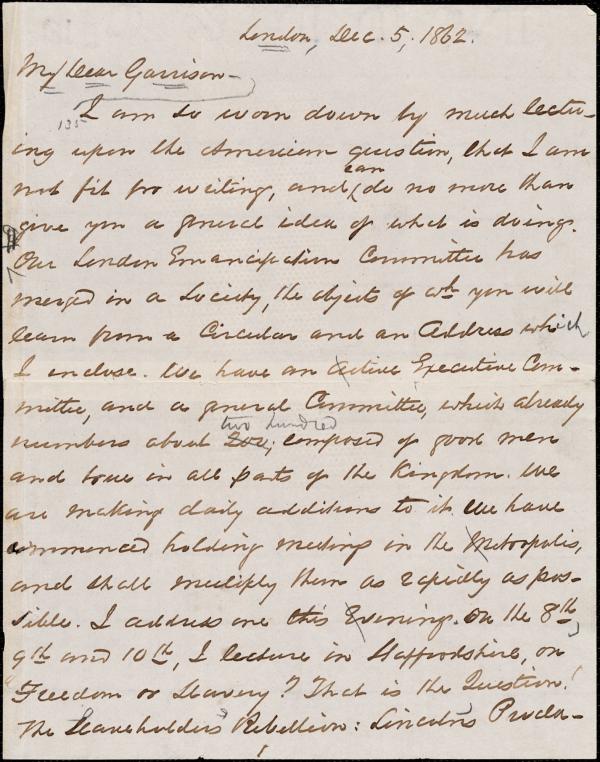 London, Dec. 5, 1862.
My Dear Garrison -
135
I am so worn down by much lectur-
ing upon the American question, that I am
not fit for writing, and can do no more than
give you a general idea of what is doing.
Our London Emancipation Committee has
merged in a Society, the objects of wh you will
learn from a Circular and an Address which
I inclose. We have an active Executive Com-
mittee, and a general Committee, which already
numbers about 200, two hundred composed of good men
and true in all parts of the Kingdom. We
are making daily additions to it. We have
commenced holding meetings in the Metropolis,
and shall multiply them as rapidly as pos-
sible. I address one this Evening. On the 8th,
9th and 10th, I lecture in Staffordshire, on
"Freedom or Slavery? That is the Question!
The Slaveholders' Rebellion: Lincoln's Procla-